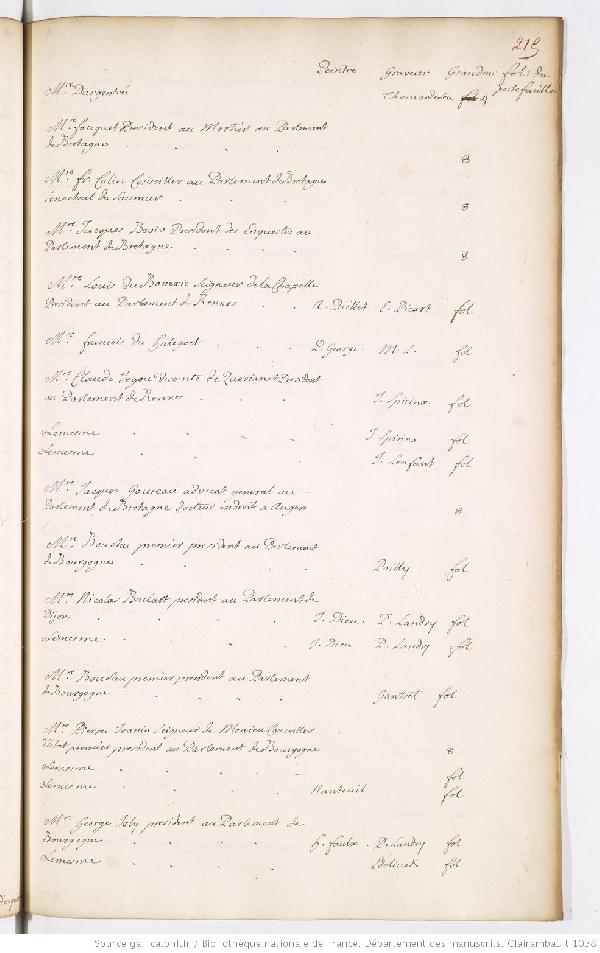 219
Peintre Graveur Grandeur fol: du portefeuille
Mre Dargentré Thomassin fol 4
Mre Jacquet President au Mortier au Parlement
de Bretagne 8
Mre fr. Colin Conseiller au Parlement de Bretagne
Senechal de Saumur 8
Mre Jacques President des Enquestes au
Parlement de Bretagne 8
Mre Louis du Bouexic Seigneur de la Chapelle
President au Parlement de Rennes A. Paillet E. Picart fol
Mre francois du Halegoet D. George M. L. fol
Mre Claude Jegou Vicomte de Querlanet President
au Parlement de Rennes J. Spirinx fol
Lemesme J. Spirinx fol
Lemesme J. Lenfant fol
Mre Jacques Goureau advocat general au
Parlement de Bretagne docteur a Angers 8
Mre Bouchu premier president au Parlement
de Bourgogne Poilly fol
Mre Nicolas Brulart president au Parlement de
Dijon J. Dieu P. Landry fol
Lemesme J. Dieu P. Landry fol
Mre Bouchu premier president au Parlement
de Bourgogne Jantret fol
Mre Pierre Jeanin Seigneur de Monjeu Conseiller
d'Estat premier president au Parlement de Bourgogne 8
Lemesme fol
Lemesme Nanteuil fol
Mre George Joly president au Parlement de
Bourgogne h. faulx P. Landry fol
Lemesme fol
Source gallica.bnf.fr / Bibliothèque nationale de France. Département des manuscrits. Clairambault 1038